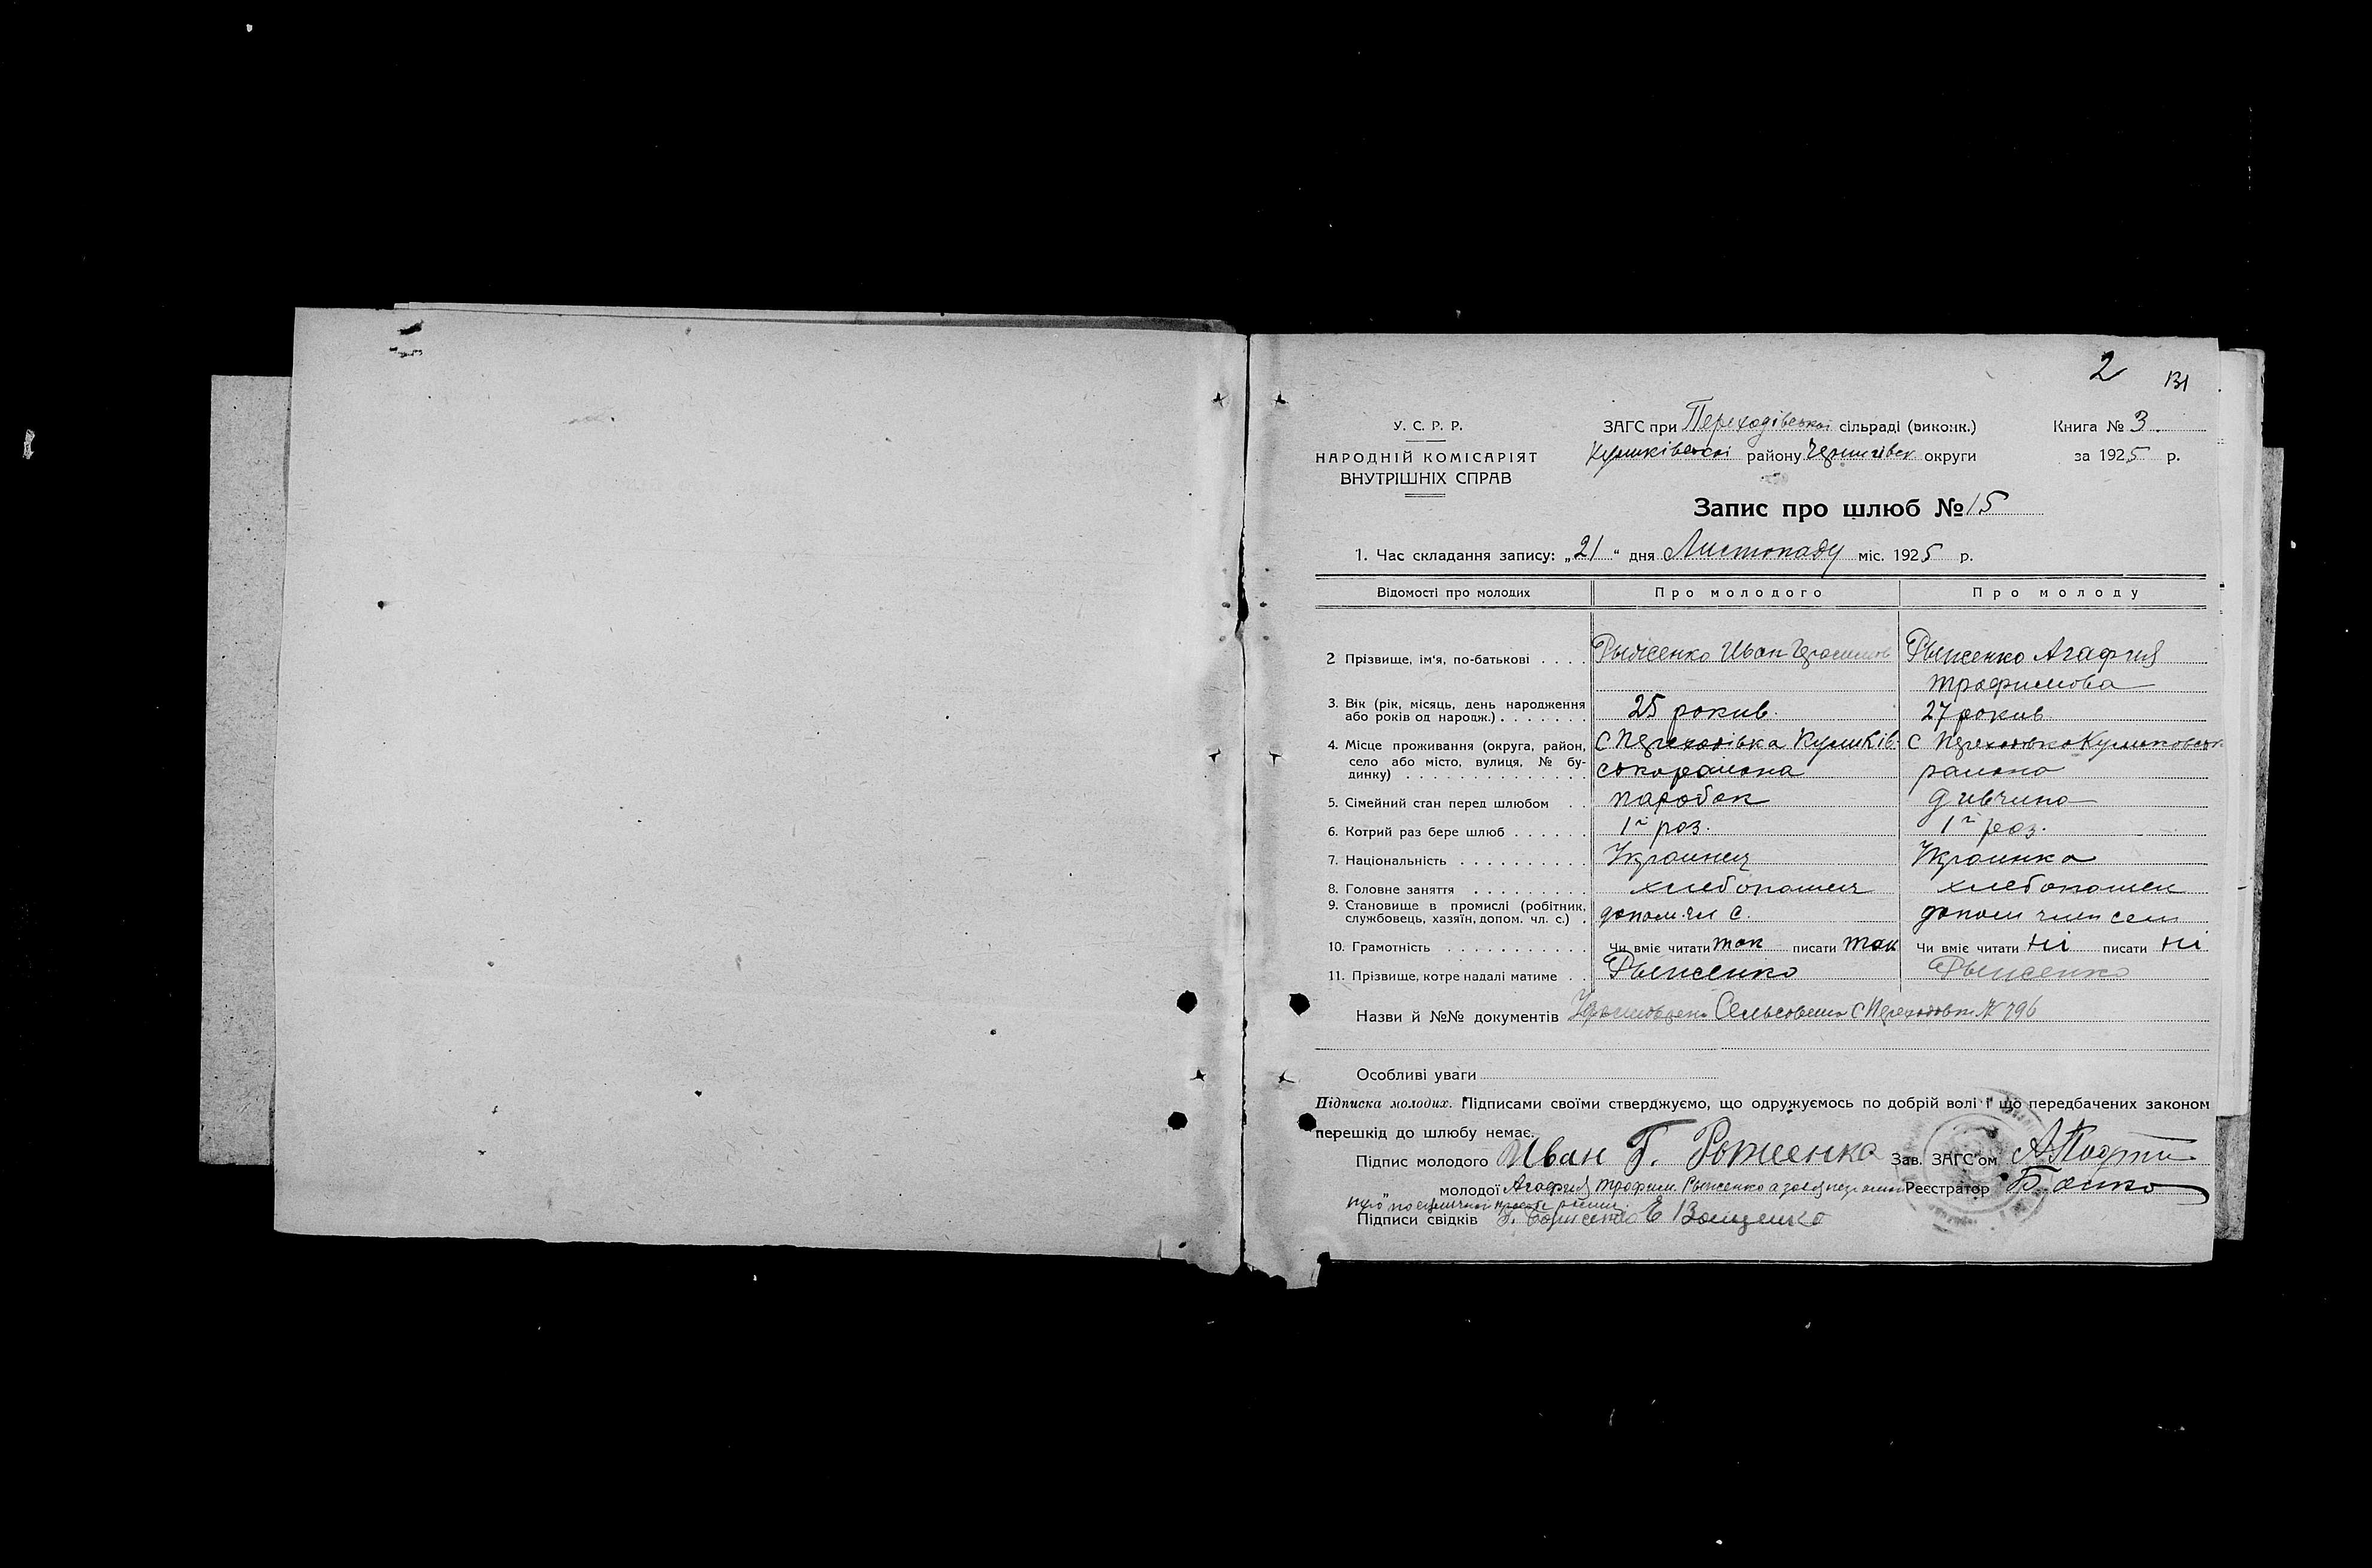 2 131
У. С. Р. Р.
НАРОДНІЙ КОМІСАРІЯТ
ВНУТРІШНІХ СПРАВ
ЗАГС при Переходівській сільраді (виконк.)
Куликівської району Чернигівск округи
Книга № 3.
за 1925 р.
Запис про шлюб № 15
1. Час складання запису: „21“ дня Листопаду міс. 1925 р.
Відомості про молодих Про молодого Про молоду
2 Прізвище, ім'я, по-батькові . . . . Рыженко Иван Герасимов Рыженко Агафия
Трофимова
3. Вік (рік, місяць, день народження
або років од народж.) . . . . . . . 25 рокив. 27 рокив.
4. Місце проживання (округа, район, С Переходівка Куликів- с Переходовка Куликовськ.
село або місто, вулиця, № бу-
динку) . . . . . . . . . . . . . . ськорайона района
5. Сімейний стан перед шлюбом . . паробок дивчина
6. Котрий раз бере шлюб . . . . . . 1й раз. 1й раз.
7. Національність . . . . . . . . . . Украинец Украинка
8. Головне заняття . . . . . . . . . хлебопашец хлебопашек
9. Становище в промислі (робітник,
службовець, хазяїн, допом. чл. с.) . допом. чл с. допом член сем
10. Грамотність . . . . . . . . . . . Чи вміє читати так писати так Чи вміє читати ні писати ні
11. Прізвище, котре надалі матиме . . Рыженко Рыженко
Назви й №№ документів Сельсовета с Переходовки № 796
Особливі уваги
Підписка молодих. Підписами своїми стверджуємо, що одружуємось по добрій волі і що передбачених законом
перешкід до шлюбу немає.
Підпис молодого Иван Г. Роженка Зав. ЗАГС'ом
„ молодої Агафия Трофим. Рыженко а за Реєстратор
Підписи свідків Е Ващенко